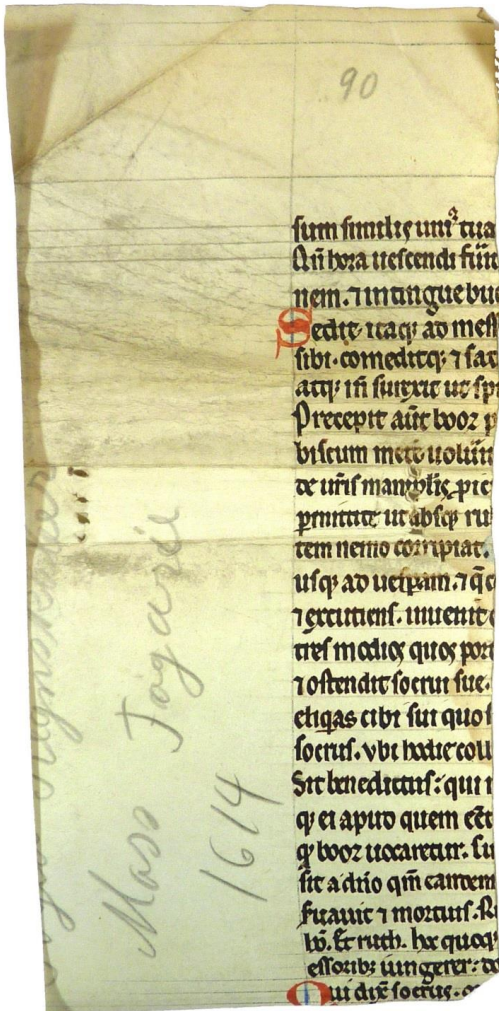 90
sum similis uniꝰ tua
Qn̄ hora uescendi fūit
nem. ⁊ intingue buc
Sedit itaqꝫ ad mess
sibi. comeditqꝫ ⁊ sat
atqꝫ in̄ surexit ut spi
Precepit aūt booz p
biscum mete uolūit
de ur̄is manipl̄is p̱ic
pmittite ut absqꝫ ru
tem nemo corripiat.
usqꝫ ad uesp̱am. ⁊ q̄
⁊ excutiens. inuenit
tres modios quos por
⁊ ostendit socrui sue.
eliq̱as cibi sui quo
socrus. vbi hodie coll
Sit benedictus: qui
qꝫ ei apud quem eēt
qꝫ booz uocaretur. su
sit a dn̄o qm̄ eandem
fuauit ⁊ mortuis. R
Et ruth. hoc quoqꝫ
essoribꝫ iungerer: do
Cui dix̄ socrus.
Mass Fogarie
1614